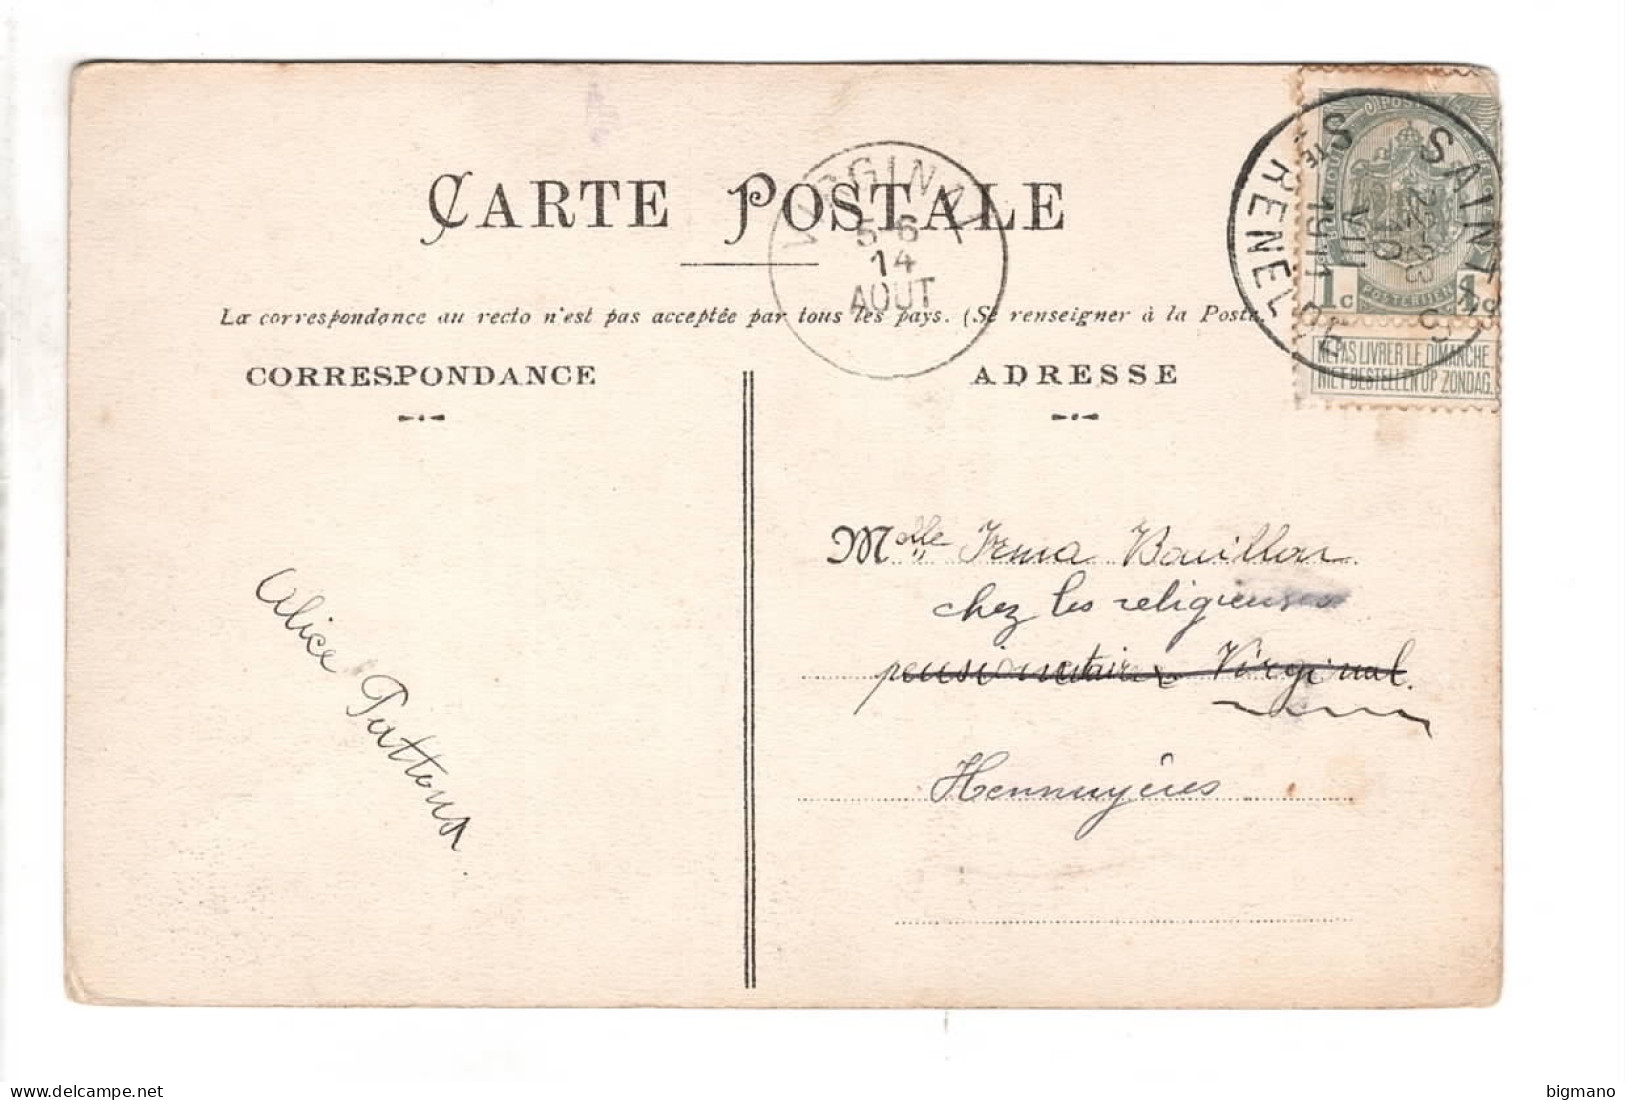 CARTE POSTALE
La correspondance au recto n'est pas acceptée par tous les pays. (Se renseigner à la Poste.
CORRESPONDANCE
ADRESSE
VIRGINAL
5-6
14
AOUT
SAINTES
STE RENELDE
VIII 10
1911
POSTERIJEN
1c
NE PAS LIVRER LE DIMANCHE
NIET BESTELLEN OP ZONDAG
Melle Irma Bouillon
chez les religieuses
pensionnataire Virginal.
Hennuyères
Alice Pattoux
delcampe.net
bigmano